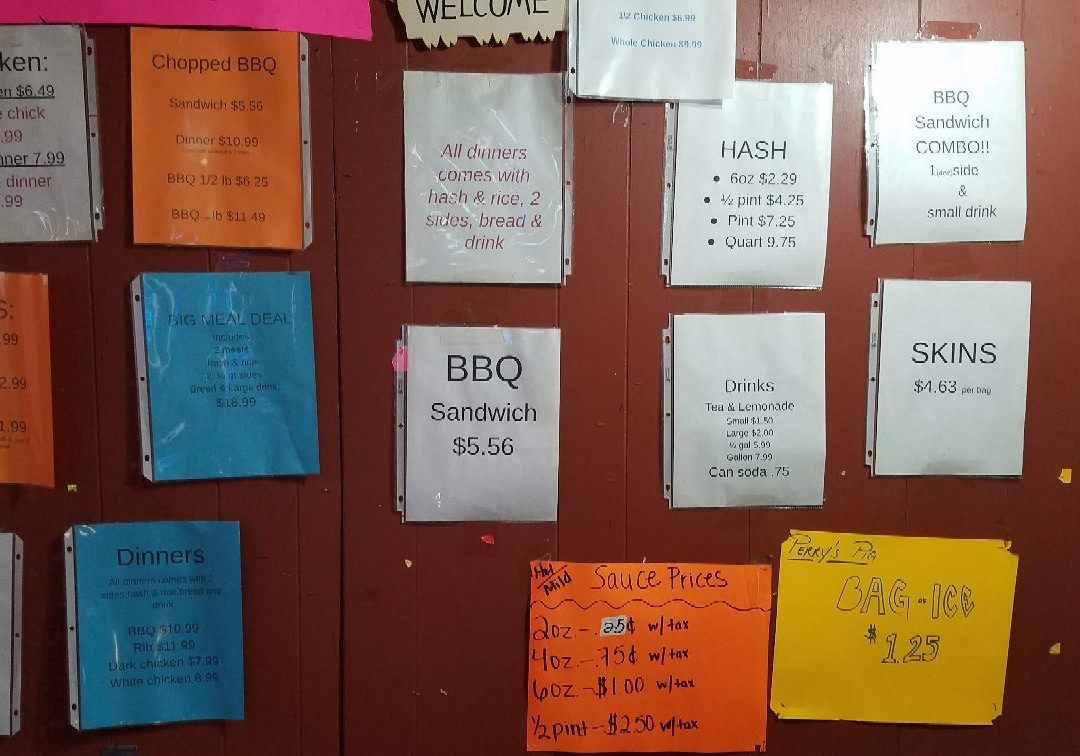 WELCOME
1\2 Chicken $6.99
Whole Chicken $9.99
ken:
en $6.49
chick
.99
nner 7.99
dinner
.99
Chopped BBQ
Sandwich $5.56
Dinner $10.99
BBQ 1/2 lb $6.25
BBQ lb $11.49
All dinners
comes with
hash & rice, 2
sides, bread &
drink
HASH
• 6oz $2.29
• ½ pint $4.25
• Pint $7.25
• Quart 9.75
BBQ
Sandwich
COMBO!!
1(4oz)side
&
small drink
S:
.99
2.99
1.99
BIG MEAL DEAL
Includes
2 meats
hash & rice
2 ½ pt sides
Bread & Large drink
$18.99
BBQ
Sandwich
$5.56
Drinks
Tea & Lemonade
Small $1.50
Large $2.00
½ gal 5.99
Gallon 7.99
Can soda .75
SKINS
$4.63 per bag
Dinners
All dinners comes with 2
sides,hash & rice,bread and
drink
BBQ $10.99
Rib $11.99
Dark chicken $7.99
White chicken 8.99
Hot
Mild
Sauce Prices
2oz.-.25¢ w/tax
4oz.-.75¢ w/tax
6oz.-$1.00 w/tax
½ pint-$2.50 w/tax
PERRY'S PIG
BAG OF ICE
$1.25